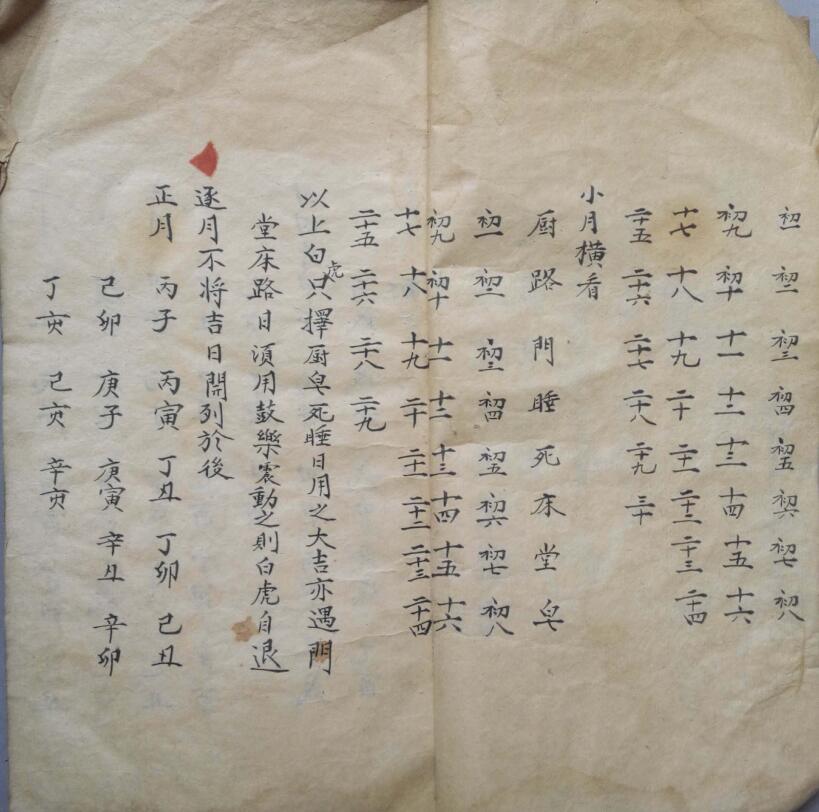 初一 初二 初三 初四 初五 初六 初七 初八
初九 初十 十一 十二 十三 十四 十五 十六
十七 十八 十九 二十 二十一 二十二 二十三 二十四
二十五 二十六 二十七 二十八 二十九 三十
小月橫看
厨 路 門 睡 死 床 堂 皂
初一 初二 初三 初四 初五 初六 初七 初八
初九 初十 十一 十二 十三 十四 十五 十六
十七 十八 十九 二十 二十一 二十二 二十三 二十四
二十五 二十六 二十八 二十九
以上白虎只擇厨皂死睡日用之大吉亦遇門
堂床路日須用鼓樂震動之則白虎自退
逐月不将吉日開列於後
正月 丙子 丙寅 丁丑 丁卯 己丑
己卯 庚子 庚寅 辛丑 辛卯
丁亥 己亥 辛亥